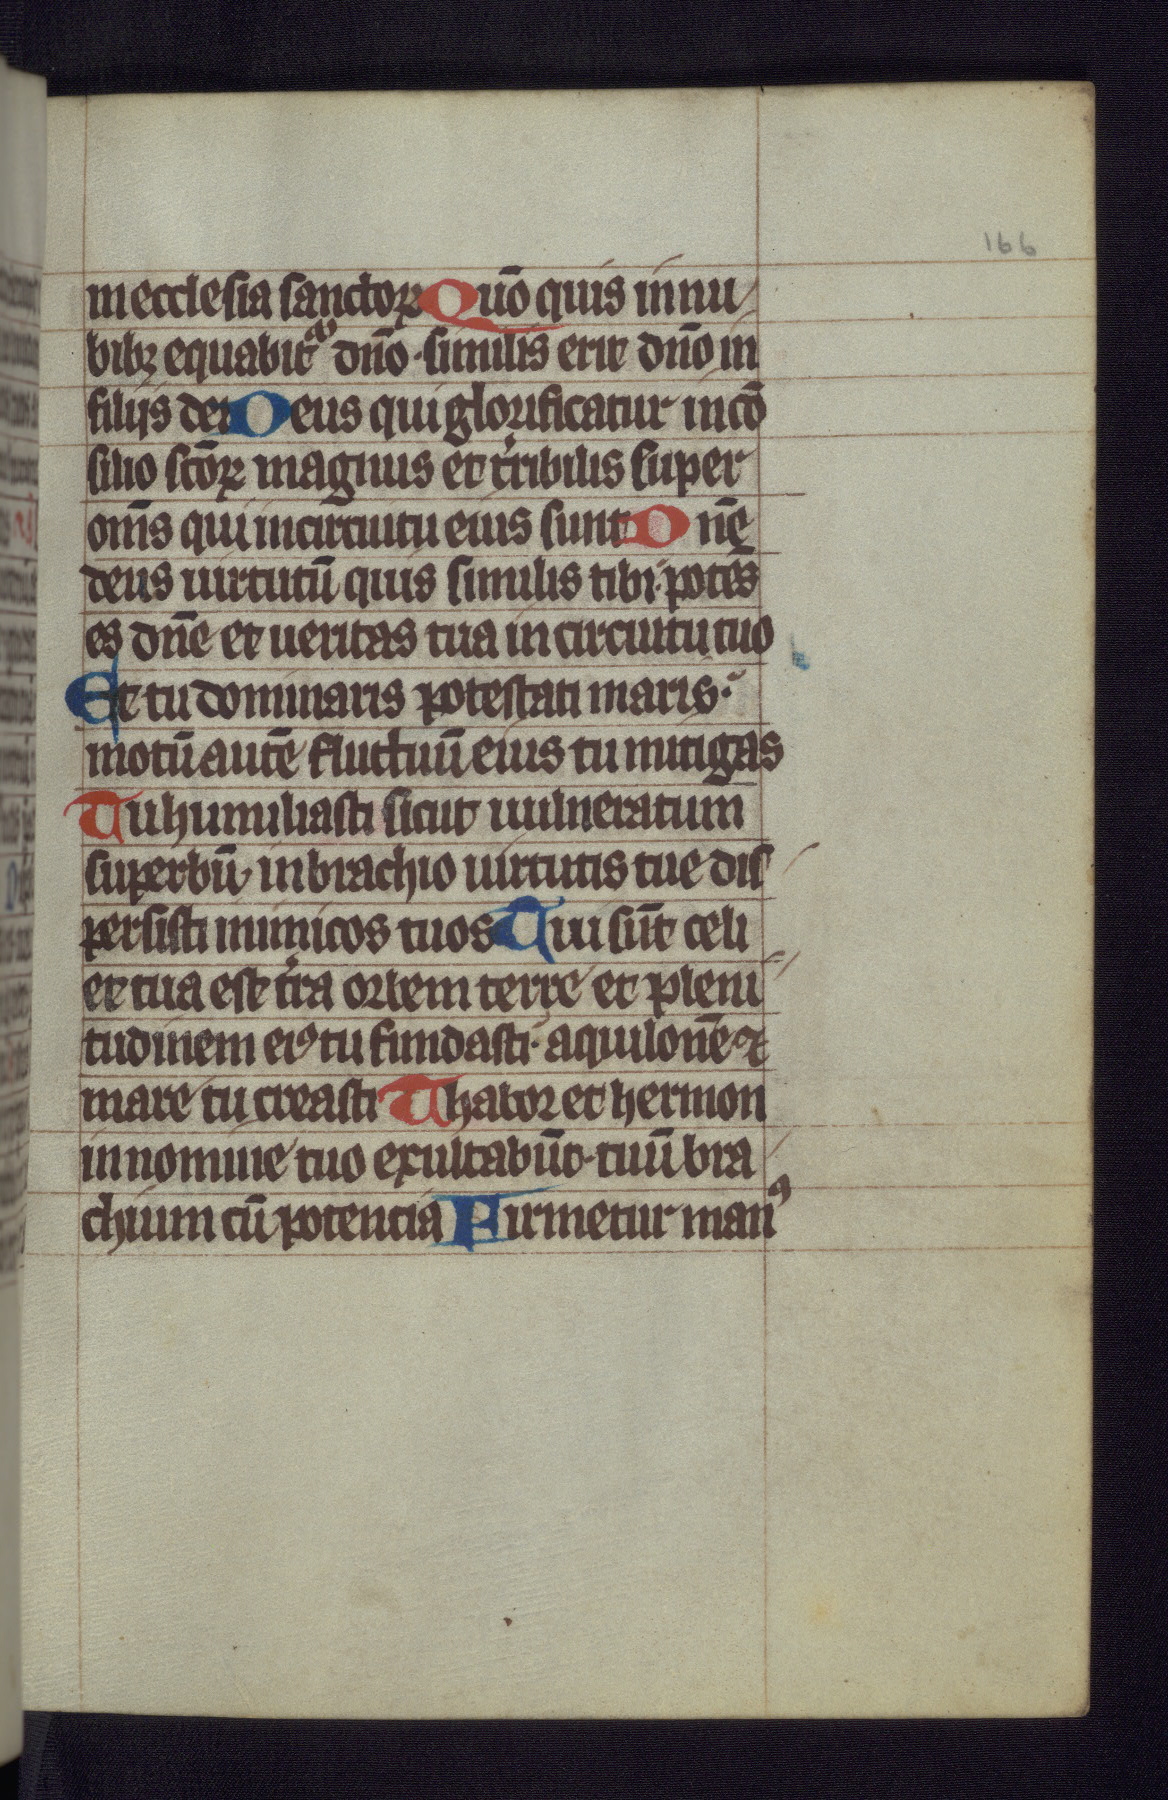 166
in ecclesia sanctoꝝ Quō quis in nu
bibꝫ equabit᷑ dn̄o · similis erit dn̄o in
filijs dei Deus qui glorificatur in cō
silio sc̄oꝝ magnus et t͛ribilis super
om̄s qui in circuitu eius sunt Dn̄e
deus uirtutū quis similis tibi· potēs
es dn̄e et ueritas tua in circuitu tuo
Et tu dominaris potestati maris·
motū autē fluctuū eius tu mitigas
Tu humiliasti sicut uulneratum
superbū· in brachio uirtutis tue dis
persisti inimicos tuos Tui sūt celi
et tua est t͛ra orbem terre et pleni
tudinem eiꝰ tu fundasti· aquilonē ⁊
mare tu creasti Thabor et hermon
in nomine tuo exultabūt· tuū bra
chium cū potencia Firmetur manꝰ